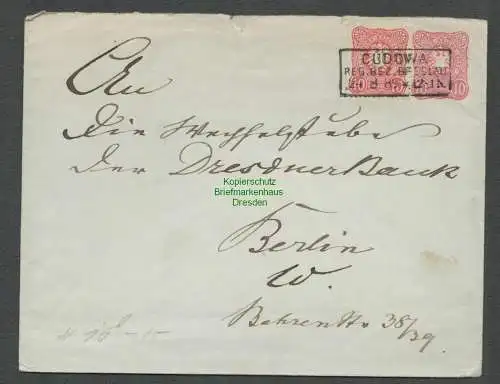 CUDOWA
REG. BEZ. BRESLAU
10
An
die Wechselstube
der Dresdner Bank
Kopierschutz
Briefmarkenhaus
Dresden
Berlin
W.
Behrenstr 38/39